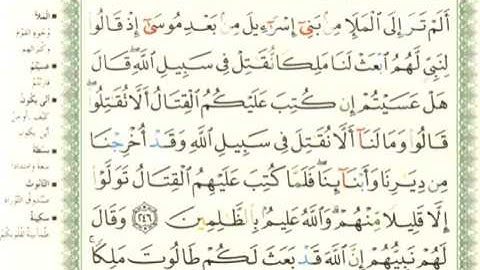 أَلَمْ تَرَ إِلَى ٱلْمَلَإِ مِنۢ بَنِىٓ إِسْرَٰٓءِيلَ مِنۢ بَعْدِ مُوسَىٰٓ إِذْ قَالُوا۟
لِنَبِىٍّ لَّهُمُ ٱبْعَثْ لَنَا مَلِكًا نُّقَٰتِلْ فِى سَبِيلِ ٱللَّهِ ۖ قَالَ
هَلْ عَسَيْتُمْ إِن كُتِبَ عَلَيْكُمُ ٱلْقِتَالُ أَلَّا تُقَٰتِلُوا۟ ۖ
قَالُوا۟ وَمَا لَنَآ أَلَّا نُقَٰتِلَ فِى سَبِيلِ ٱللَّهِ وَقَدْ أُخْرِجْنَا
مِن دِيَٰرِنَا وَأَبْنَآئِنَا ۖ فَلَمَّا كُتِبَ عَلَيْهِمُ ٱلْقِتَالُ تَوَلَّوْا۟
إِلَّا قَلِيلًا مِّنْهُمْ ۗ وَٱللَّهُ عَلِيمٌۢ بِٱلظَّٰلِمِينَ ٢٤٦ وَقَالَ
لَهُمْ نَبِيُّهُمْ إِنَّ ٱللَّهَ قَدْ بَعَثَ لَكُمْ طَالُوتَ مَلِكًا ۚ
الملأ
عسيتم
أنى يكون
التابوت
سكينة